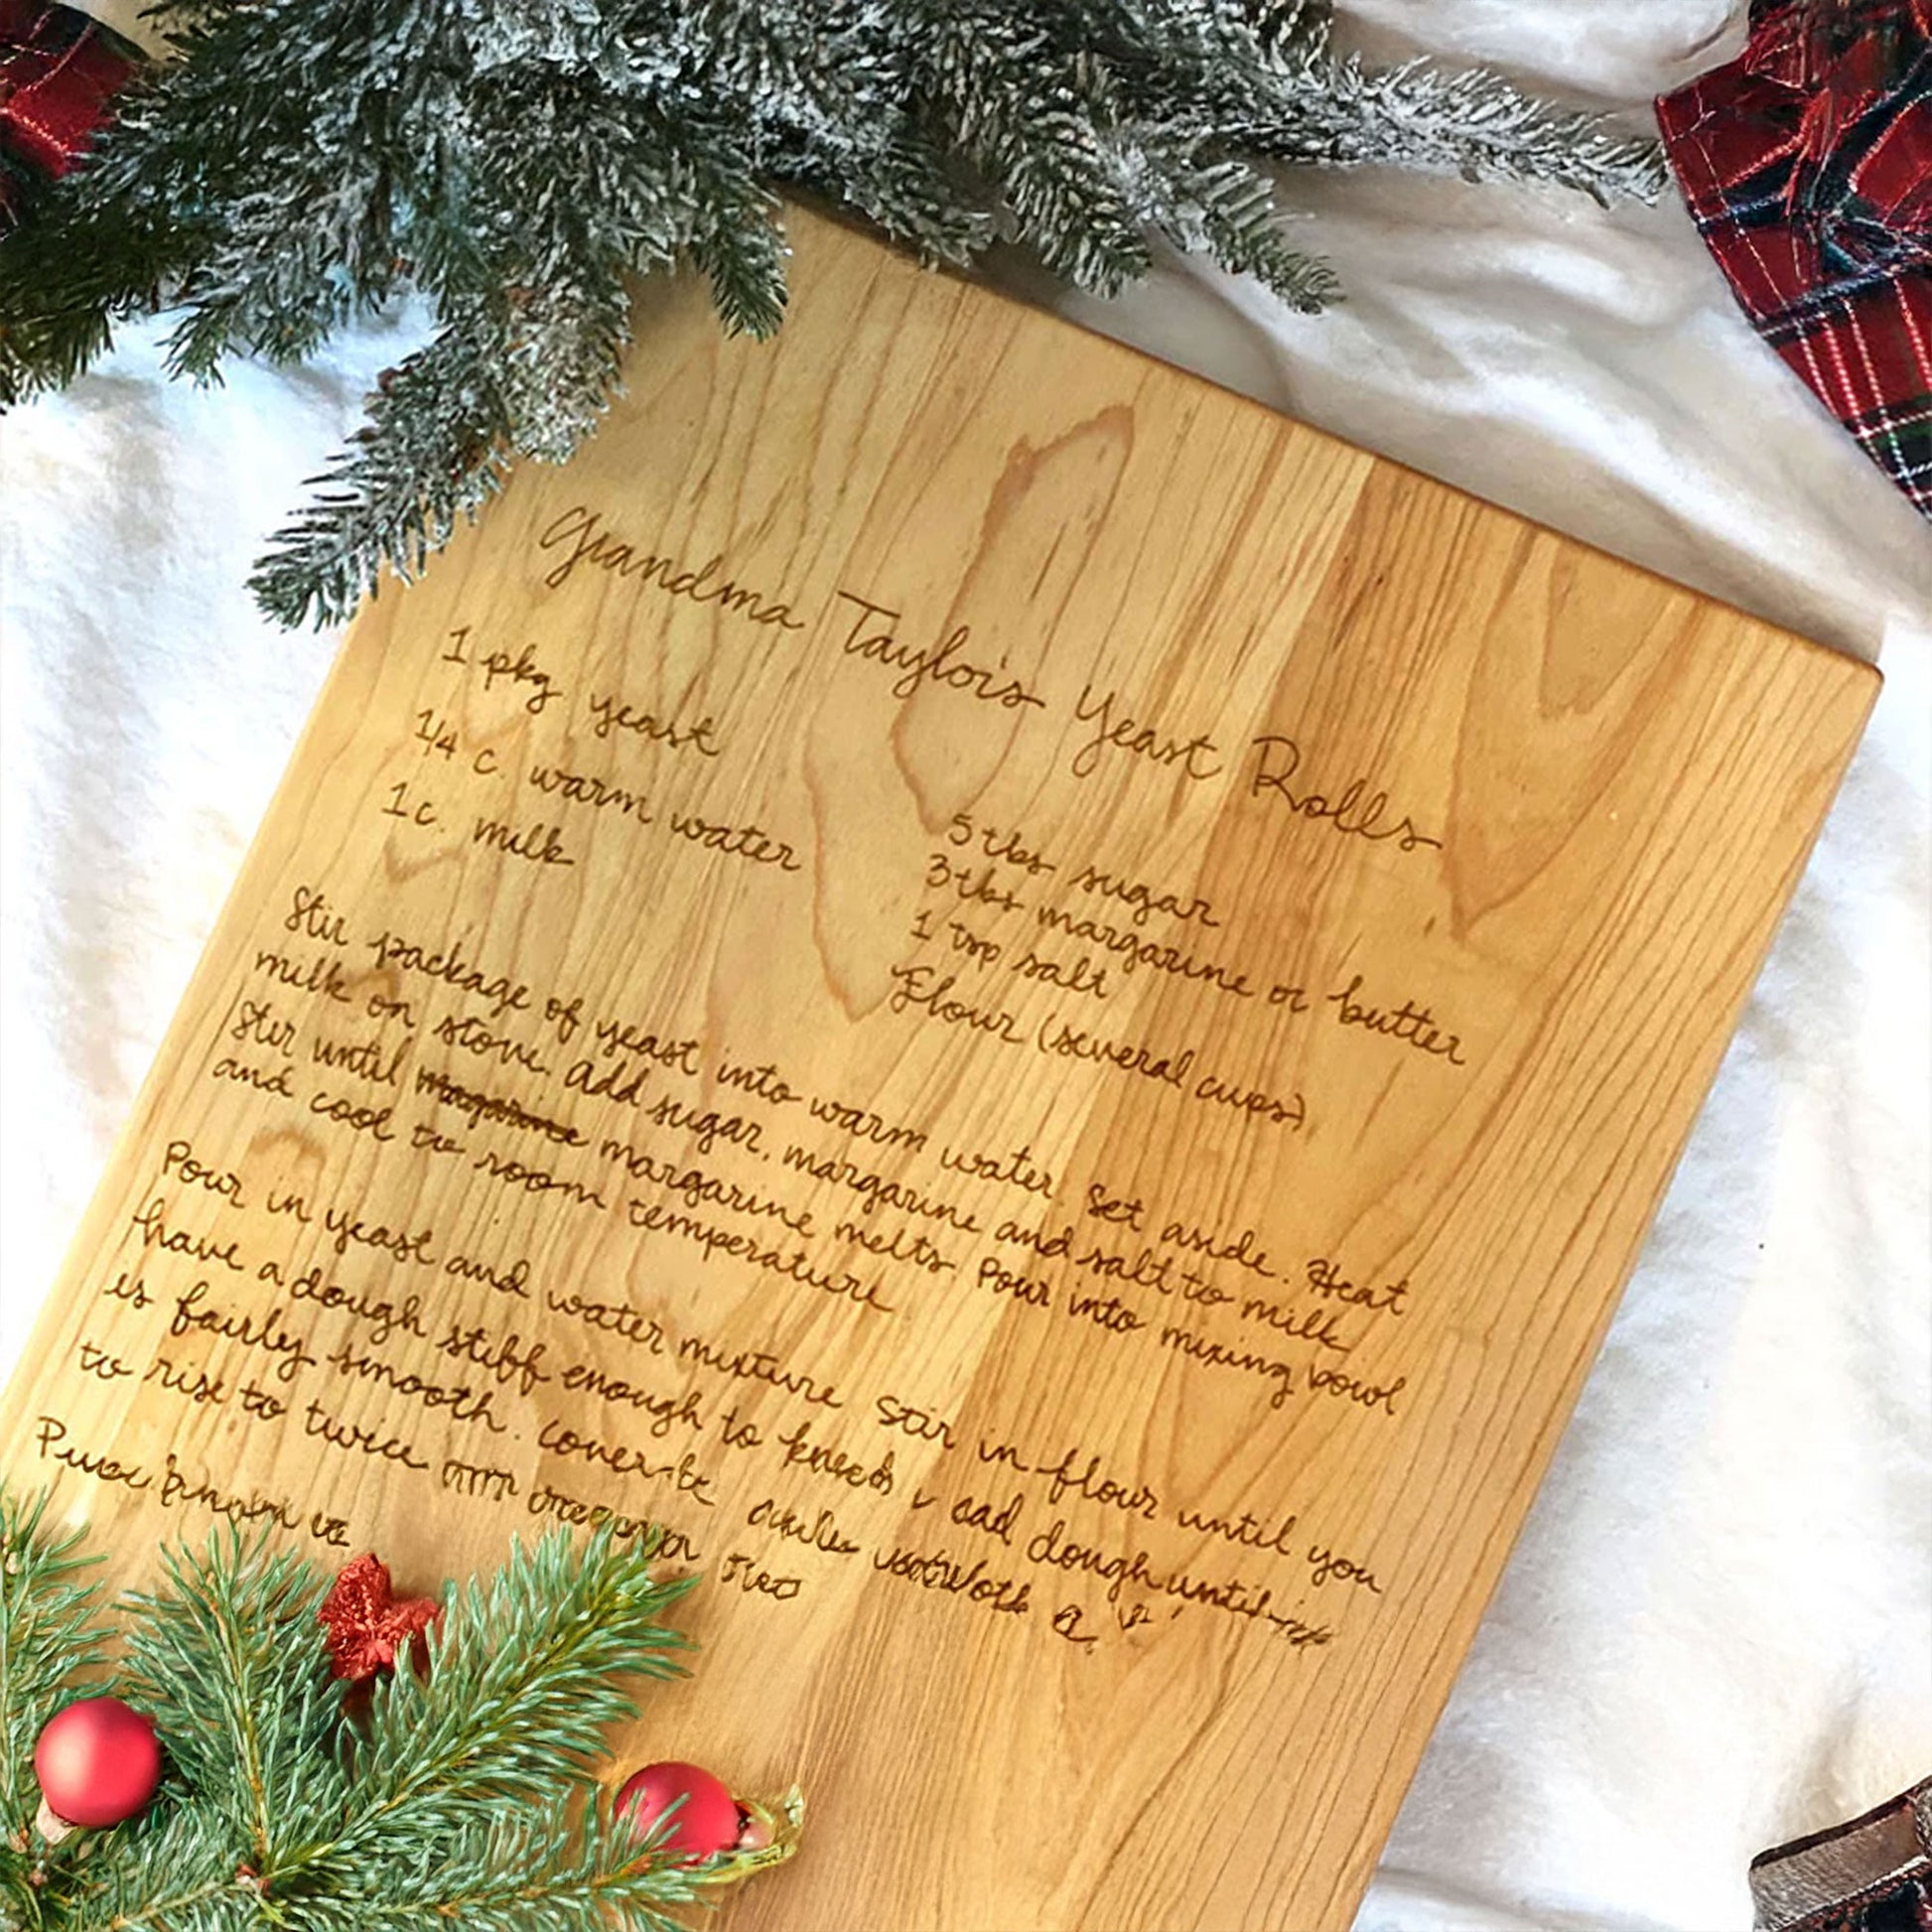 Grandma Taylor's Yeast Rolls
1 pkg yeast
1/4 c. warm water
1 c. milk
5 tbs sugar
3 tbs margarine or butter
1 tsp salt
Flour (several cups)
Stir package of yeast into warm water. Set aside. Heat
milk on stove. Add sugar, margarine and salt to milk
Stir until magarine margarine melts. Pour into mixing bowl
and cool to room temperature
Pour in yeast and water mixture Stir in flour until you
have a dough stiff enough to knead dough until
is fairly smooth. cover
to rise to twice